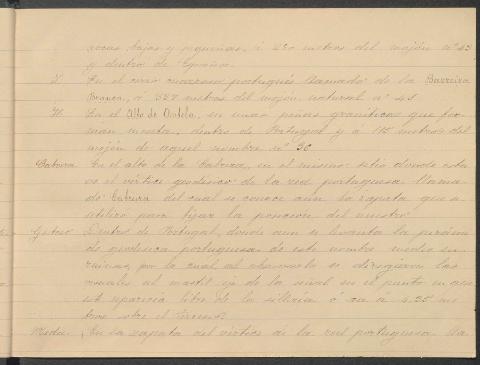 rocas bajas y pequeñas, á 220 metros del mojón nº 43
y dentro de España.
En el cerro cuarzoso portugués llamado de la Barreira
Branca, á 527 metros del mojón natural nº 45
En el Alto do Outelo, en unas peñas graníticas que for-
man meseta, dentro de Portugal y á 115 metros del
mojón de aquel nombre nº 36
Cabura En el alto de la Cabura, en el mismo sitio donde estu-
vo el vértice geodésico de la red portuguesa llama-
do Cabura del cual se conoce aún la zapata que se
utilizó para fijar la posición del nuestro
Dentro de Portugal, donde aun se levanta la pirámi-
de geodésica portuguesa de este nombre medio en
ruinas, por la cual al observarla se dirigieron las
visuales al mastil eje de la señal en el punto en que
esta aparecía libre de la sillería ó sea á 4.25 me-
tros sobre el terreno.
En la zapata del vértice de la red portuguesa